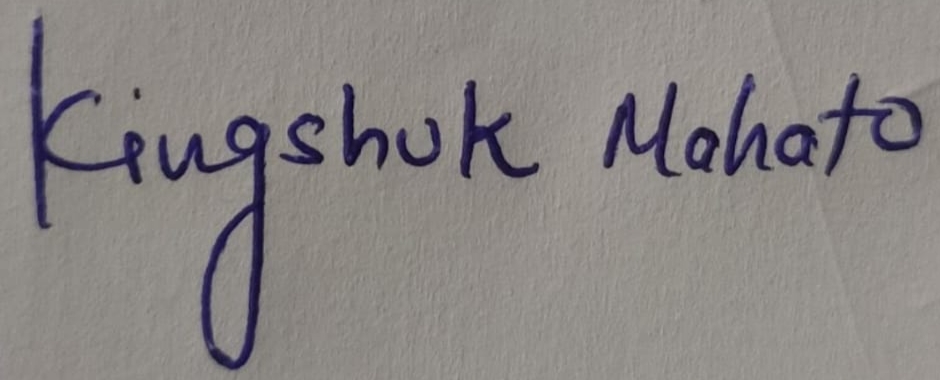 Kingshuk Mahato